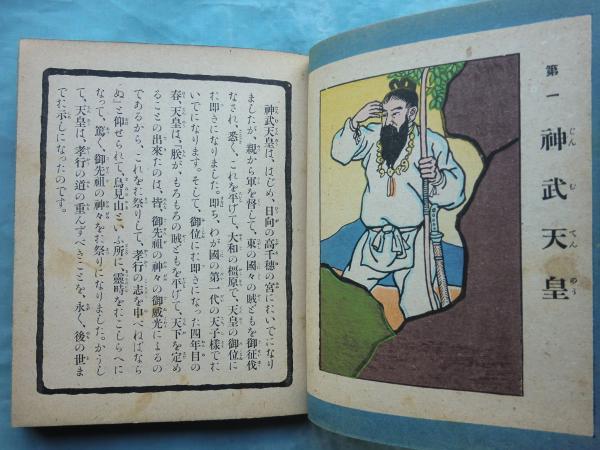 第一 神武天皇
じんむてんのう
神武天皇は、はじめ、日向の高千穂の宮においでになり
ましたが、親から軍を督して、東の國々の賊どもを御征伐
なされ、悉く、これを平げて、大和の橿原で、天皇の御位に
お即きになりました。即ち、わが國の第一代の天子樣でお
いでになります。そして、御位にお即きになつた四年目の
春、天皇は、「朕が、もろもろの賊どもを平げて、天下を定め
ることの出來たのは、皆、御先祖の神々の御威光によるの
であるから、これをお祭りして、孝行の志を申べねばなら
ぬ」と仰せられて、鳥見山といふ所に、靈畤をおこしらへに
なつて、篤く、御先祖の神々をお祭りになりました。かうし
て、天皇は、孝行の道の重んずべきことを、永く、後の世ま
でお示しになつたのです。